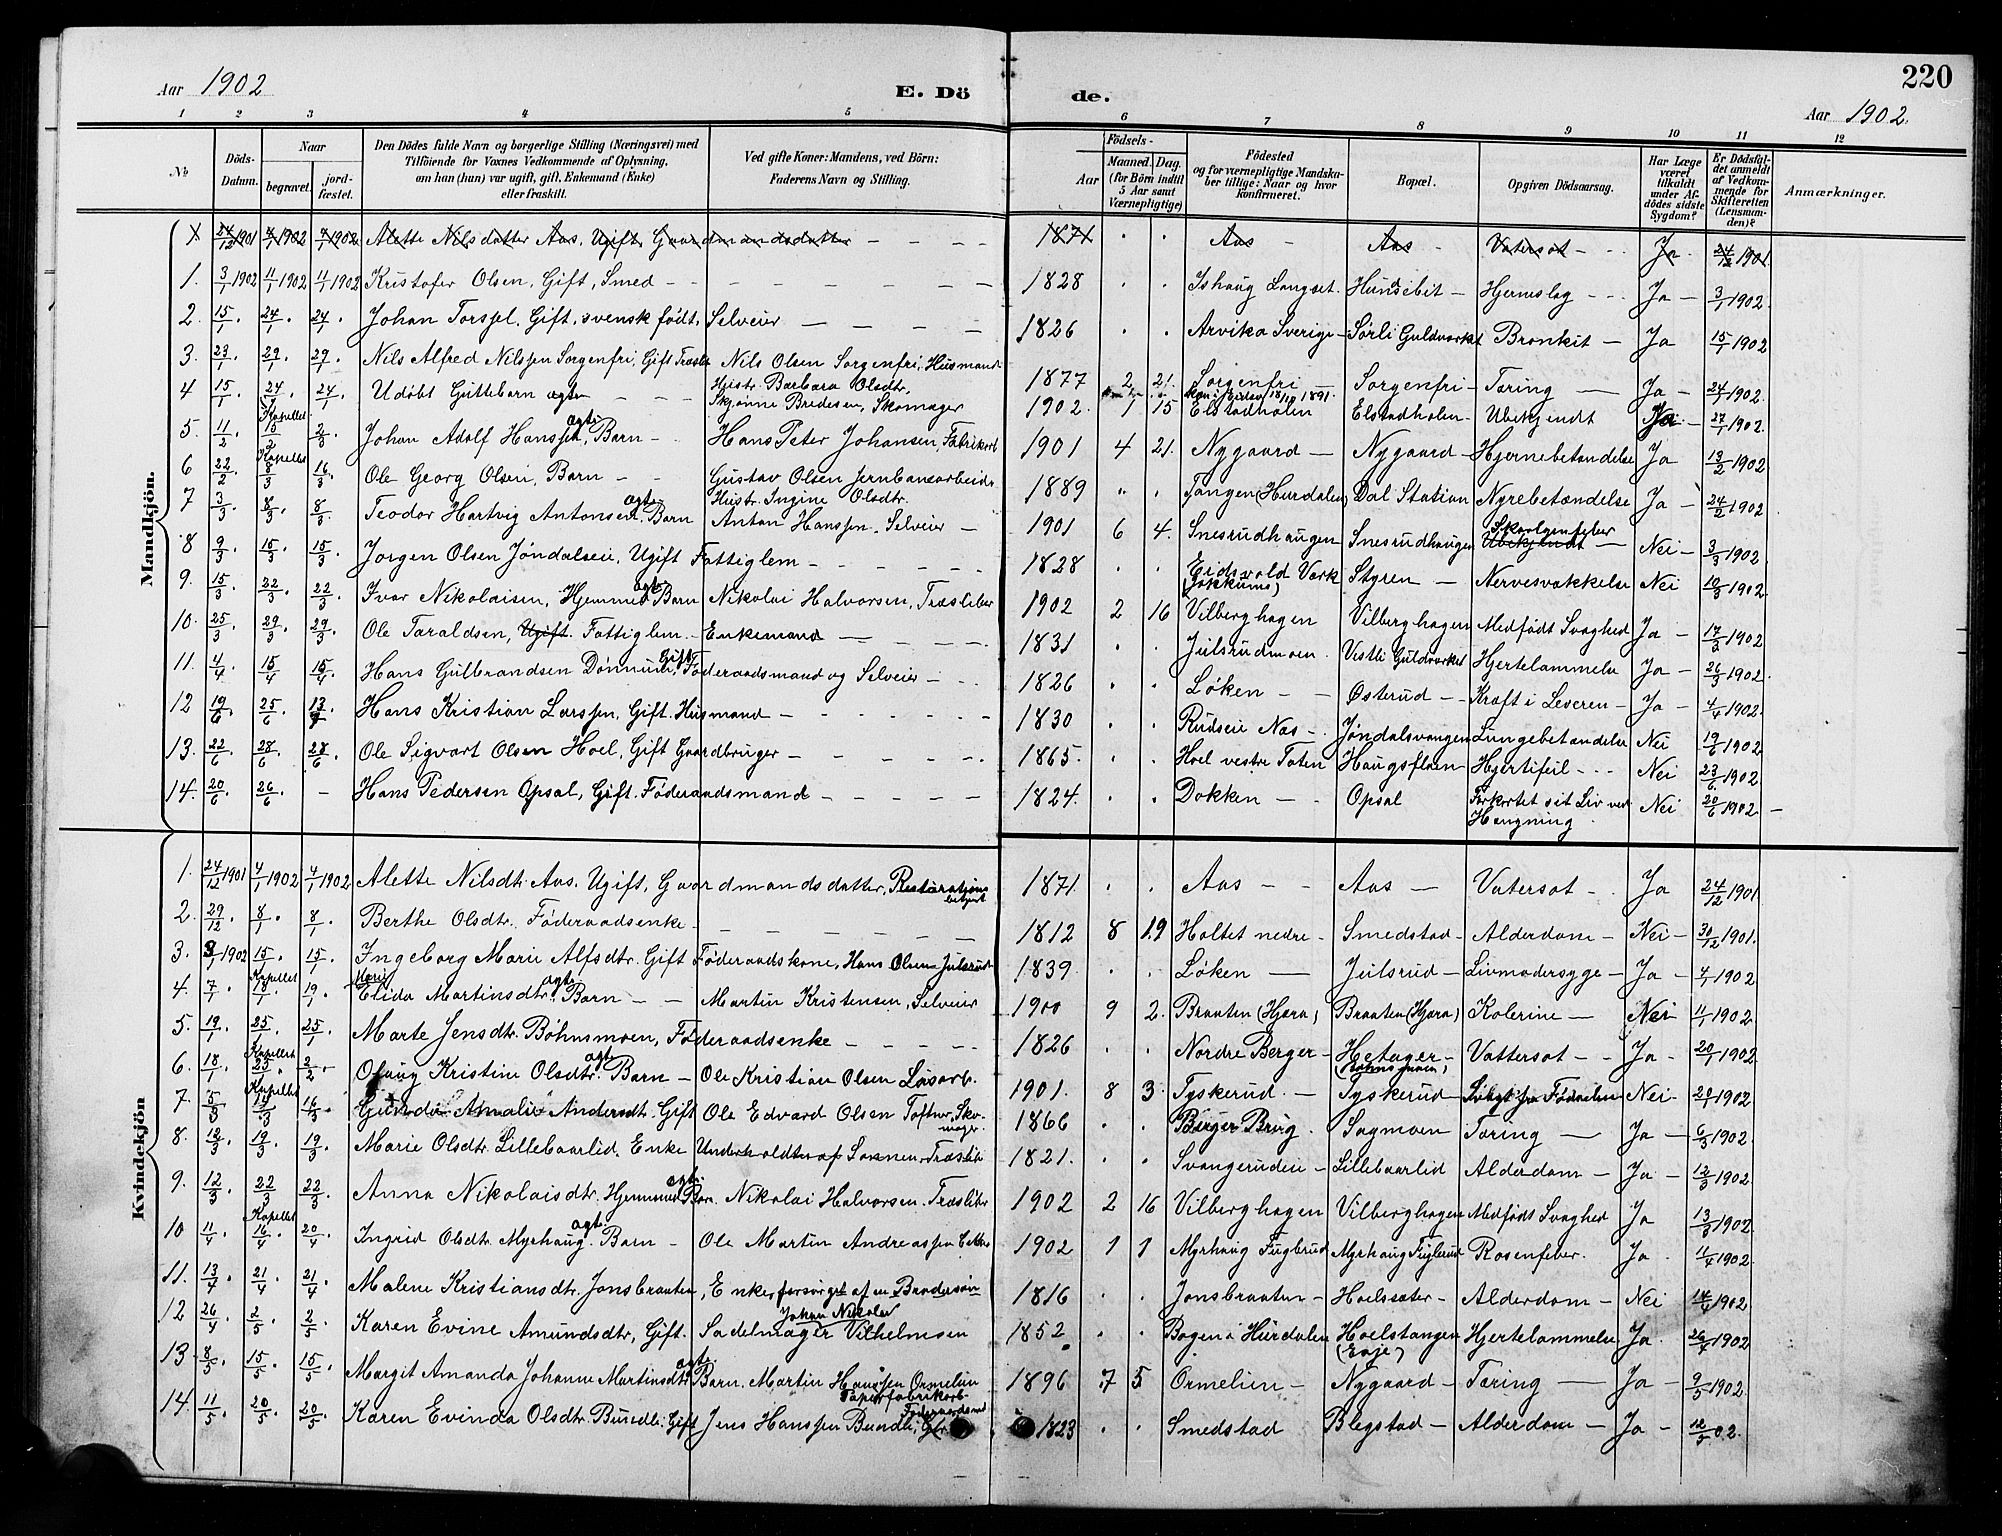 220
Aar 1902
E. Dö
de.
Aar 1902.
1 2 3 4 5 6 7 8 9 10 11 12
№
Döds-Datum.
Naar
begravet.
jord-fæstet.
Den Dödes fulde Navn og borgerlige Stilling (Næringsvei) med
Tilföiende for Voxnes Vedkommende af Oplysning,
om han (hun) var ugift, gift, Enkemand (Enke)
eller fraskilt.
Ved gifte Koner: Mandens, ved Börn:
Faderens Navn og Stilling.
Födsels-
Aar
Maaned. Dag.
(for Börn indtil
5 Aar samt
Værnepligtige)
Födested
og for værnepligtige Mandska-
ber tillige: Naar og hvor
konfirmeret.
Bopæl.
Opgiven Dödsaarsag.
Har Læge
været
tilkaldt
under Af-
dödes sidste
Sygdom?
Er Dödsfal-
det anmeldt
af Vedkom-
mende for
Skifteretten
(Lensman-
den)?
Anmærkninger.
Mandkjön.
1 24/12 1901 4/1 1902 4/1 1902 Alette Nilsdatter Aas, Ugift, Gaardmandsdatter 1871 Aas Aas Vatersot Ja 24/12 1901.
1. 3/1 1902 11/1 1902 11/1 1902 Kristofer Olsen, Gift, Smed 1828 Ishaug Langset. Hundebit Hjerneslag Ja 3/1 1902
2. 15/1 24/1 24/1 Johan Torsjel, Gift, svensk født, Selveier 1826 Arvika Sverige Sørli Guldverket Bronkit Ja 15/1 1902
3. 23/1 29/1 29/1 Nils Alfred Nilssen Sorgenfri, Gift Nils Olsen Sorgenfri, Husmand 1877 2 21. Sorgenfri Sorgenfri Tæring Ja 24/1 1902.
4 15/1 24/1 24/1 Udøbt Guttebarn Hustr. Barbara Olsdtr.
Skjønne Bredesen, Skomager 1902. 1 15 Elstadholen Elstadholen Ubekjendt 27/1 1902.
5. 11/2 Kapellet 2/3 Johan Adolf Hanssen, ægte Barn Hans Peter Johansen, Fabrikarb 1901 4 21. Nygaard Nygaard Hjernebetændelse Ja 13/2 1902
6 22/2 Kapellet 8/3 16/3 Ole Georg Olsen, Barn Gustav Olsen Jernbanearbeider
Hustr. Ingine Olsdtr. 1889 Tangen (Hurdalen) Dal Station Nyrebetændelse Ja 24/2 1902
7 3/3 8/3 8/3 Teodor Hartvig Antonsen, ægte Barn Anton Hanssen, Selveier 1901 6 4. Snesrudhaugen Snesrudhaugen Skarlagenfeber Ubekjendt Nei 3/3 1902.
8 9/3 15/3 15/3 Jørgen Olsen Jøndalseie, Ugift Fattiglem 1828 Eidsvold Værk Styren Nervesvækkelse Nei 10/3 1902.
9. 15/3 22/3 22/3 Ivar Nikolaisen, Hjemmed. ægte Barn Nikolai Halvorsen, Træsliber 1902 2 16 Vilberghagen Vilberghagen Medfødt Svaghed Ja 17/3 1902
10. 25/3 29/3 29/3 Ole Taraldsen, Ugift. Fattiglem Enkemand 1831 Julsrudmoen. Vestli Guldverket Hjertelammelse Ja 26/3 1902.
11. 4/4 15/4 15/4 Hans Gulbrandsen Dønnum, Gift Føderaadsmand og Selveier 1826 Løken Østerud Kræft i Leveren Ja 4/4 1902.
12 19/6 25/6 13/7 Hans Kristian Larssen, Gift. Husmand 1830 Rudseie Næs Jøndalsvangen Lungebetændelse Nei 19/6 1902
13. 22/6 28/6 28/6 Ole Sigvart Olsen Hoel, Gift Gaardbruger 1865. Hoel vestre Toten Haugsflaen Hjertefeil Nei 23/6 1902
14. 20/6 26/6 – Hans Pedersen Opsal, Gift. Føderaadsmand 1824. Dokken Opsal Forkortet sit Liv ved
Hængning Nei 20/6 1902
Kvindekjön
1. 24/12 1901 4/1 1902 4/1 1902 Alette Nilsdtr. Aas. Ugift, Gaardmandsdatter, Restarations 1871. Aas Aas Vatersot Ja 24/12 1901
2. 29/12 8/1 8/1 Berthe Olsdtr. Føderaadsenke 1812 8 19 Holtet nedre Smedstad Alderdom Nei 30/12 1901.
3. 3/1 1902 15/1 15/1 Ingeborg Marie Alfsdtr. Gift Føderaadskone, Hans Olsen Julsrud 1839. Løken Julsrud Livmodersyge Ja 4/1 1902
4. 7/1 Kapellet 19/1 Elida Marie Martinsdtr. ægte Barn Martin Kristensen, Selveier 1900 9 2. Braaten (Hjæra) Braaten (Hjæra) Kolerine Nei 11/1 1902.
5. 19/1 25/1 25/1 Marte Jensdtr. Bøhnsmoen, Føderaadsenke 1826 Nordre Berger Hetager
(Bøhnsmoen) Vattersot Ja 20/1 1902
6. 18/1 Kapellet 23/1 2/2 Olaug Kristine Olsdtr. ægte Barn Ole Kristian Olsen Løsarb. 1901. 8 3. Tyskerud Tyskerud Svagt fra Fødselen Nei 20/1 1902
7 5/3 Kapellet 16/3 Gunda Amalie Andersdt. Gift Ole Edvard Olsen Toftner, Sko-
mager. 1866 Birger Brug. Sagmoen Tæring Ja 6/3 1902.
8. 12/3 19/3 19/3 Marie Olsdtr. Lillebaarlid. Enke Underholdtes af Sønnen Træslib 1821. Svangerudeie Lillebaarlid Alderdom Ja 12/3 1902.
9. 12/3 22/3 22/3 Anna Nikolaisdtr. Hjemmed. ægte Barn. Nikolai Halvorsen Træsliber 1902 2 16 Vilberghagen Vilberghagen Medfødt Svaghed Ja 13/3 1902
10 11/4 Kapellet 16/4 20/4 Ingrid Olsdtr. Myrhaug. ægte Barn Ole Martin Andreassen 1902 1 1 Myrhaug Fuglerud Myrhaug Fuglerud Rosenfeber. Ja 11/4 1902.
11. 13/4 21/4 21/4 Malene Kristiansdtr. Jonsbraaten, Enke, forsørget af en Brodersøn 1816 Jonsbraaten Hoelssæter Alderdom Nei 14/4 1902.
12 26/4 2/5 2/5 Karen Evine Amundsdtr, Gift. Sadelmager Johan Nikolai Vilhelmsen 1852 Bogen i Hurdalen Hoelstangen
(Eije) Hjertelammelse Ja 26/4 1902
13 8/5 15/5 15/5 Margit Amanda Johanne Martinsdtr ægte Barn. Martin Hanssen Ormelien
Papirfabrikarb. 1896 7 5 Ormelien Nygaard Tæring Ja 9/5 1902.
14. 11/5 20/5 20/5 Karen Evinda Olsdtr. Bundli. Gift Jens Hanssen Bundli, Føderaadsmd 1823 Smedstad Blegstad Alderdom Ja 12/5 02.